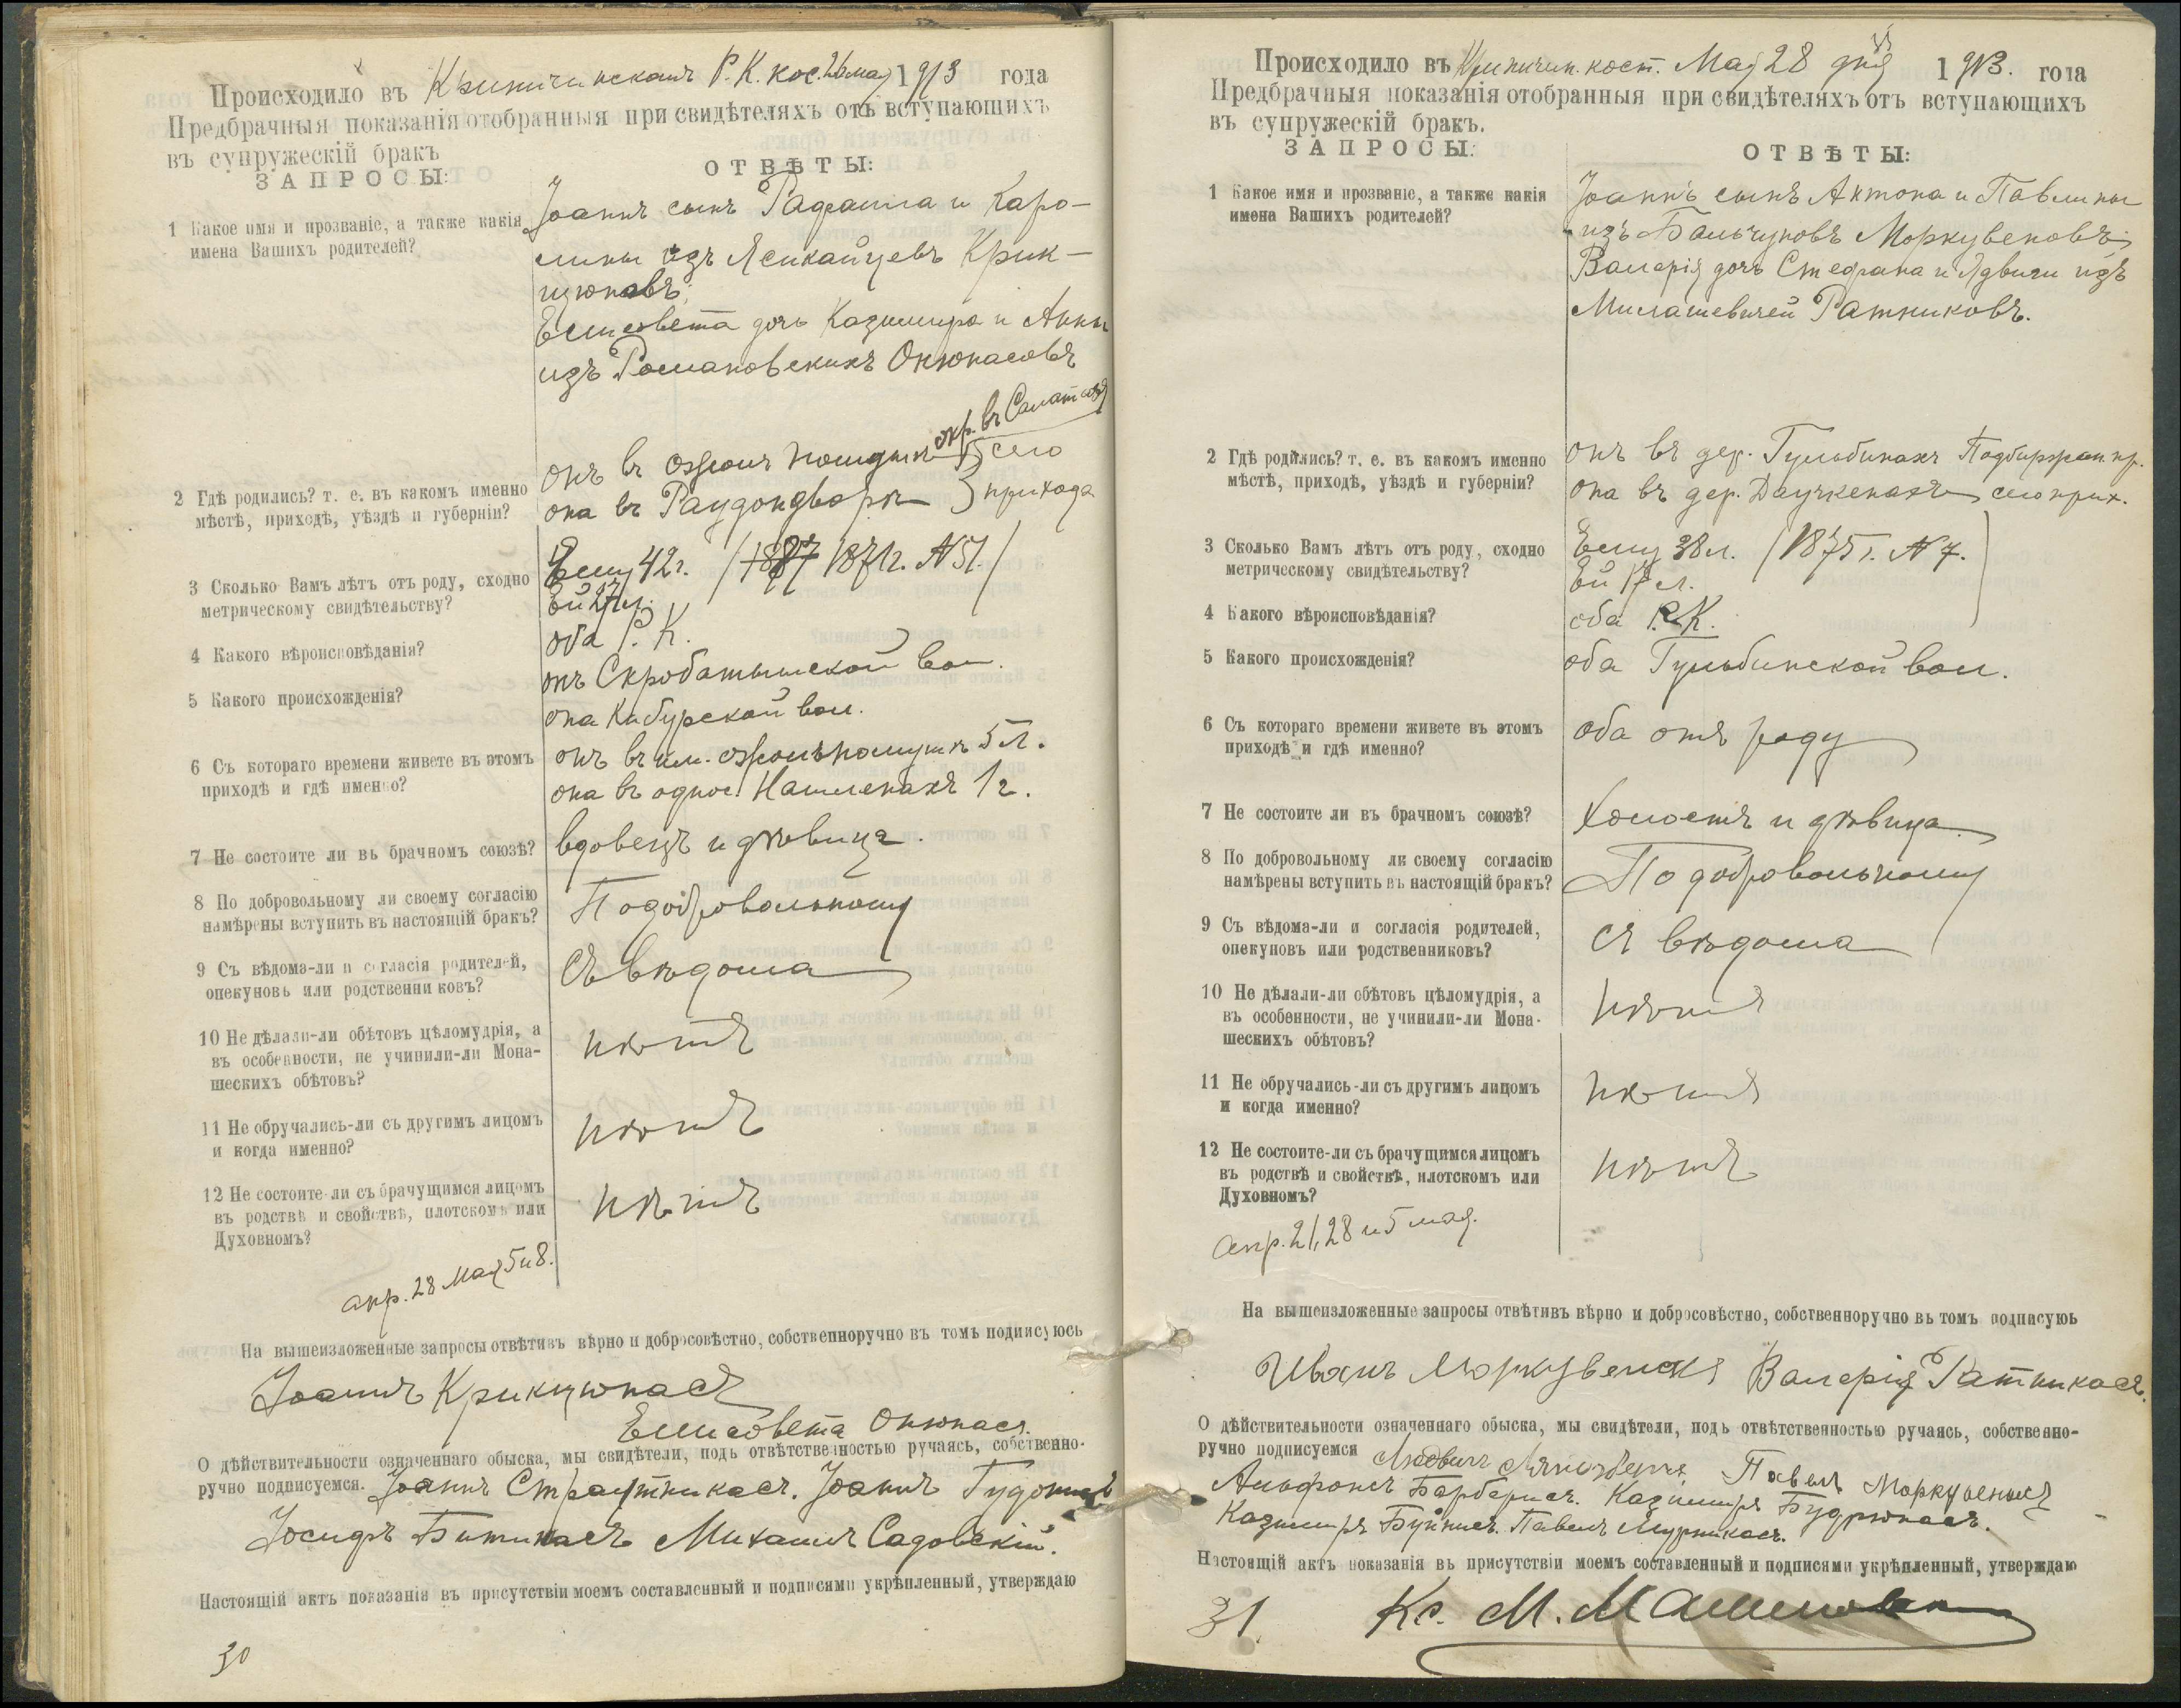 Происходило въ Криничинскомъ Р. К. кос. 26 мая 1913 года
Предбрачныя показанія отобранныя при свидѣтеляхъ отъ вступающихъ
въ супружескій бракъ
ЗАПРОСЫ:
ОТВѢТЫ:
1 Какое имя и прозваніе, а также какія
имена Вашихъ родителей?
Іоаннъ сынъ Рафаила и Каро-
лины изъ Ясикайцевъ Крик-
щюновъ;
Елисовета дочь Казимира и Анны
изъ Романовскихъ Онюнасовъ
2 Гдѣ родились? т. е. въ какомъ именно
мѣстѣ, приходѣ, уѣздѣ и губерніи?
онъ въ
окр. въ
сего
она въ Раудондворѣ
прихода
3 Сколько Вамъ лѣтъ отъ роду, сходно
метрическому свидѣтельству?
Ему 42 г. / 1871 г. N 51. /
Ей 27 л.
4 Какого вѣроисповѣданія?
оба Р. К.
5 Какого происхожденія?
онъ Скробатышской вол.
она Кабурской вол.
6 Съ котораго времени живете въ этомъ
приходѣ и гдѣ именно?
онъ въ им. 5 л.
она въ однос. 1 г.
7 Не состоите ли въ брачномъ союзѣ?
вдовецъ и дѣвица.
8 По добровольному ли своему согласію
намѣрены вступить въ настоящій бракъ?
По добровольному
9 Съ вѣдома-ли и согласія родителей,
опекуновъ или родственниковъ?
Съ вѣдома
10 Не дѣлали-ли обѣтовъ цѣломудрія, а
въ особенности, не учинили-ли Мона-
шескихъ обѣтовъ?
нѣтъ
11 Не обручались-ли съ другимъ лицомъ
и когда именно?
нѣтъ
12 Не состоите-ли съ брачущимся лицомъ
въ родствѣ и свойствѣ, плотскомъ или
Духовномъ?
нѣтъ
апр. 28 Мая 5 и 8.
На вышеизложенные запросы отвѣтивъ вѣрно и добросовѣстно, собственноручно въ томъ подписуюсь
Іоаннъ Крикщюнасъ
Елисовета Онюнасъ.
О дѣйствительности означеннаго обыска, мы свидѣтели, подъ отвѣтственностью ручаясь, собственно-
ручно подписуемся. Іоаннъ Страутникасъ. Іоаннъ
Іосифъ Битинасъ Михаилъ Садовскій.
Настоящій актъ показанія въ присутствіи моемъ составленный и подписями укрѣпленный, утверждаю
30
Происходило въ Криничин. кост. Мая 28 дня 1913. года
Предбрачныя показанія отобранныя при свидѣтеляхъ отъ вступающихъ
въ супружескій бракъ.
ЗАПРОСЫ:
ОТВѢТЫ:
1 Какое имя и прозваніе, а также какія
имена Вашихъ родителей?
Іоаннъ сынъ Антона и Павлины
изъ Бальчуновъ Моркувеновъ;
Валерія дочь Стефана и Ядвиги изъ
Милашевичей Ратниковъ.
2 Гдѣ родились? т. е. въ какомъ именно
мѣстѣ, приходѣ, уѣздѣ и губерніи?
онъ въ дер. Гульбинахъ Подбиржан. пр.
она въ дер. Даучкенахъ сего прих.
3 Сколько Вамъ лѣтъ отъ роду, сходно
метрическому свидѣтельству?
Ему 38 л. / 1875 г. N 7.
Ей 17 л.
4 Какого вѣроисповѣданія?
оба Р.К.
5 Какого происхожденія?
оба Гульбинской вол.
6 Съ котораго времени живете въ этомъ
приходѣ и гдѣ именно?
оба отъ роду
7 Не состоите ли въ брачномъ союзѣ?
Холостъ и дѣвица
8 По добровольному ли своему согласію
намѣрены вступить въ настоящій бракъ?
По добровольному
9 Съ вѣдома-ли и согласія родителей,
опекуновъ или родственниковъ?
Съ вѣдома
10 Не дѣлали-ли обѣтовъ цѣломудрія, а
въ особенности, не учинили-ли Мона-
шескихъ обѣтовъ?
нѣтъ
11 Не обручались-ли съ другимъ лицомъ
и когда именно?
нѣтъ
12 Не состоите-ли съ брачущимся лицомъ
въ родствѣ и свойствѣ, плотскомъ или
Духовномъ?
нѣтъ
апр. 21, 28 и 5 мая.
На вышеизложенные запросы отвѣтивъ вѣрно и добросовѣстно, собственноручно въ томъ подписуюь
Иванъ Моркувенасъ Валерія Ратникасъ.
О дѣйствительности означеннаго обыска, мы свидѣтели, подъ отвѣтственностью ручаясь, собственно-
ручно подписуемся Павелъ Моркувенасъ
Альфонсъ Барборисъ. Казимиръ Будрюнасъ.
Казимиръ Буйнисъ. Павелъ Мурникасъ.
Настоящій актъ показанія въ присутствіи моемъ составленный и подписями укрѣпленный, утверждаю
31
Кс. М.